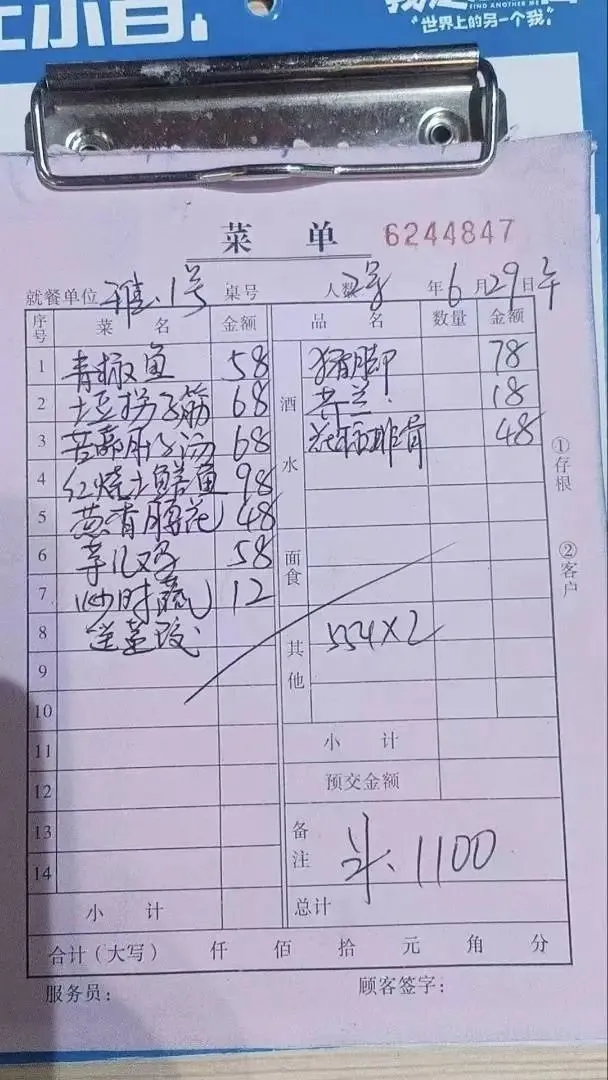 FIND ANOTHER ME
"世界上的另一个我"
菜 单 6244847
就餐单位 雅.1号 桌号 人数 2号 年 6 月 29 日 午
序号 菜 名 金额 品 名 数量 金额
1 青椒鱼 58 猪脚 78
2 土豆拐子筋 68 酒水 芥兰 18
3 68 排骨 48
4 红烧土鳝鱼 98
5 葱青腰花 48
6 58 面食
7 炒时蔬 12
8 送 其他 554×2
9
10
11 小 计
12 预交金额
13 备注 1100
14
小 计 总计
合计(大写) 仟 佰 拾 元 角 分
服务员: 顾客签字:
①存根
②客户